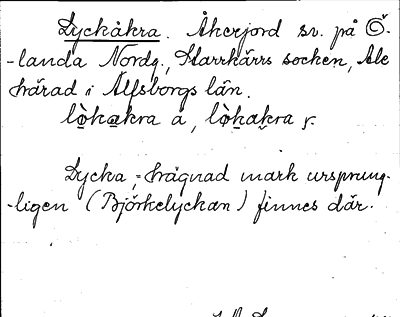 Lyckåkra. Åkerjord sv. på Ö-
-landa Nordg., Starrkärrs socken, Ale
härad i Älfsborgs län.
lòkakra a, lòkakra r.
Lycka, = hägnad mark ursprung-
-ligen (Björkelyckan) finnes där.